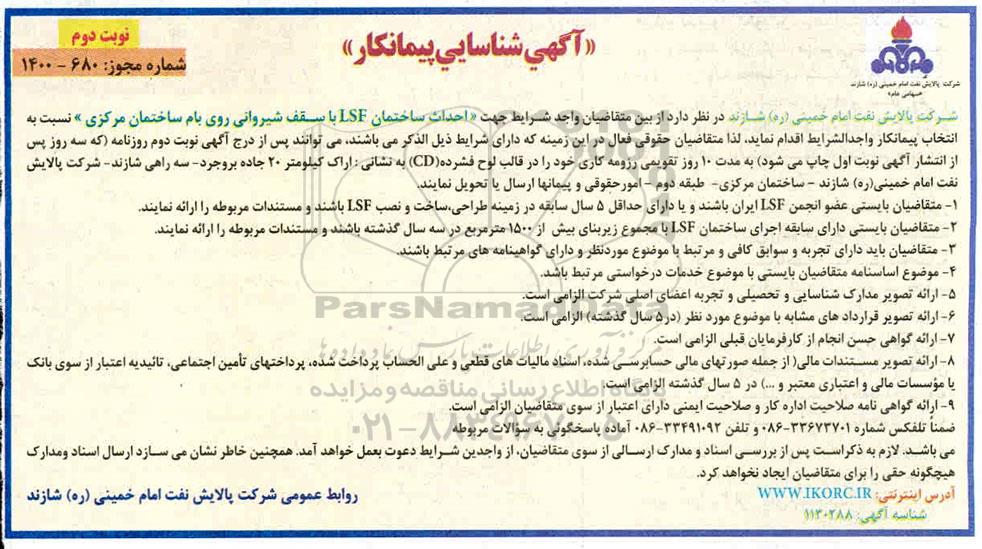 نوبت دوم
شماره مجوز: ۶۸۰ - ۱۴۰۰
«آگهي شناسايي پيمانکار»
شرکت پالایش نفت امام خمینی (ره) شازند
«سهامی عام»
شرکت پالایش نفت امام خمینی (ره) شازند در نظر دارد از بین متقاضیان واجد شرایط جهت «احداث ساختمان LSF با سقف شیروانی روی بام ساختمان مرکزی» نسبت به
انتخاب پیمانکار واجدالشرایط اقدام نماید، لذا متقاضیان حقوقی فعال در این زمینه که دارای شرایط ذیل الذکر می باشند، می توانند پس از درج آگهی نوبت دوم روزنامه (که سه روز پس
از انتشار آگهی نوبت اول چاپ می شود) به مدت ۱۰ روز تقویمی رزومه کاری خود را در قالب لوح فشرده(CD) به نشانی : اراک کیلومتر ۲۰ جاده بروجرد- سه راهی شازند- شرکت پالایش
نفت امام خمینی(ره) شازند – ساختمان مرکزی- طبقه دوم – امورحقوقی و پیمانها ارسال یا تحویل نمایند.
۱- متقاضیان بایستی عضو انجمن LSF ایران باشند و یا دارای حداقل ۵ سال سابقه در زمینه طراحی،ساخت و نصب LSF باشند و مستندات مربوطه را ارائه نمایند.
۲- متقاضیان بایستی دارای سابقه اجرای ساختمان LSF با مجموع زیربنای بیش از ۱۵۰۰مترمربع در سه سال گذشته باشند و مستندات مربوطه را ارائه نمایند.
۳- متقاضیان باید دارای تجربه و سوابق کافی و مرتبط با موضوع موردنظر و دارای گواهینامه های مرتبط باشند.
۴- موضوع اساسنامه متقاضیان بایستی با موضوع خدمات درخواستی مرتبط باشد.
۵- ارائه تصویر مدارک شناسایی و تحصیلی و تجربه اعضای اصلی شرکت الزامی است.
۶- ارائه تصویر قرارداد های مشابه با موضوع مورد نظر (در۵ سال گذشته) الزامی است.
۷- ارائه گواهی حسن انجام از کارفرمایان قبلی الزامی است.
۸- ارائه تصویر مستندات مالی( از جمله صورتهای مالی حسابرسی شده، اسناد مالیات های قطعی و علی الحساب پرداخت شده، پرداختهای تأمین اجتماعی، تائیدیه اعتبار از سوی بانک
یا مؤسسات مالی و اعتباری معتبر و ...) در ۵ سال گذشته الزامی است.
۹- ارائه گواهی نامه صلاحیت اداره کار و صلاحیت ایمنی دارای اعتبار از سوی متقاضیان الزامی است.
ضمناً تلفکس شماره ۳۳۶۷۳۷۰۱-۰۸۶ و تلفن ۳۳۴۹۱۰۹۲-۰۸۶ آماده پاسخگوئی به سؤالات مربوطه
می باشد. لازم به ذکراست پس از بررسی اسناد و مدارک ارسالی از سوی متقاضیان، از واجدین شرایط دعوت بعمل خواهد آمد. همچنین خاطر نشان می سازد ارسال اسناد ومدارک
هیچگونه حقی را برای متقاضیان ایجاد نخواهد کرد.
آدرس اینترنتی: WWW.IKORC.IR
روابط عمومی شرکت پالایش نفت امام خمینی (ره) شازند
شناسه آگهی: ۱۱۳۰۲۸۸
ParsNamadData
پایگاه اطلاع رسانی مناقصه و مزایده